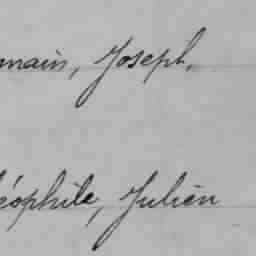 main, Joseph,
éophile, Julien